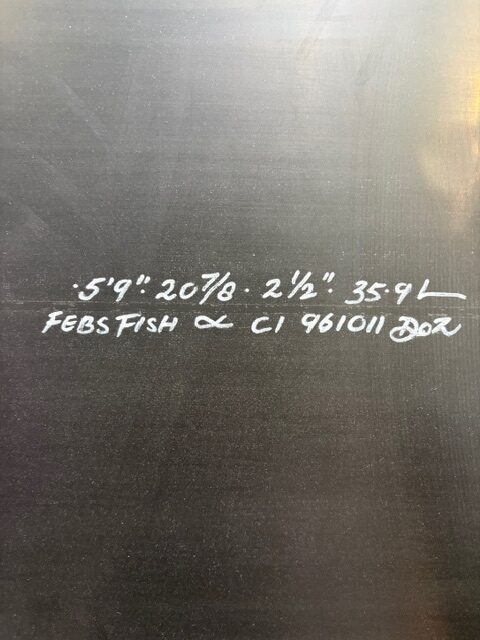 ·5'9": 20 7/8 · 2 1/2": 35·9 L
FEBS FISH ∝ CI 961011